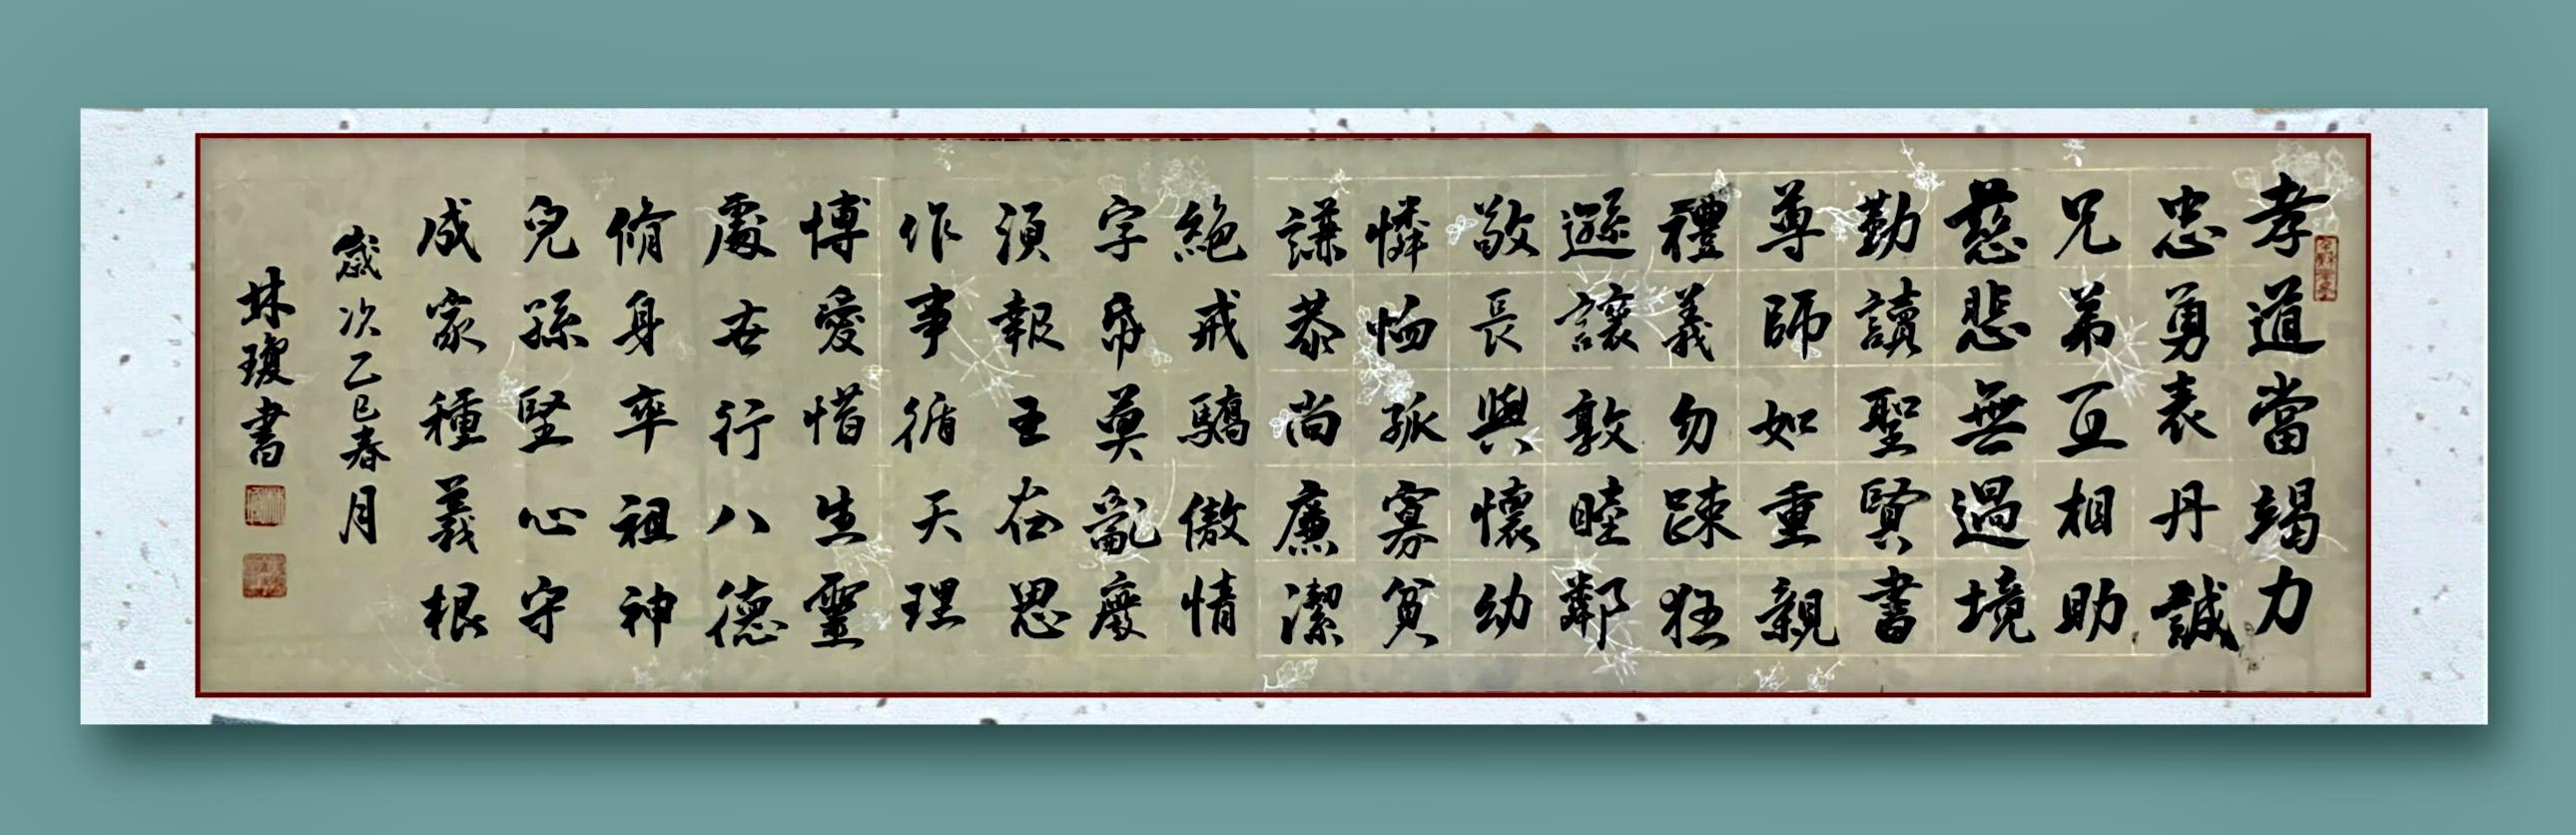 孝道當竭力
忠勇表丹誠
兄弟互相助
慈悲無過境
勤讀聖賢書
尊師如重親
禮義勿踈狂
遜讓敦睦鄰
敬長與懷幼
憐恤孤寡貧
謙恭尚廉潔
絕戒驕傲情
字帋莫亂廢
須報五谷恩
作事循天理
博愛惜生靈
處世行八德
脩身率祖神
兒孫堅心守
成家種義根
歲次乙巳春月
林瓊書